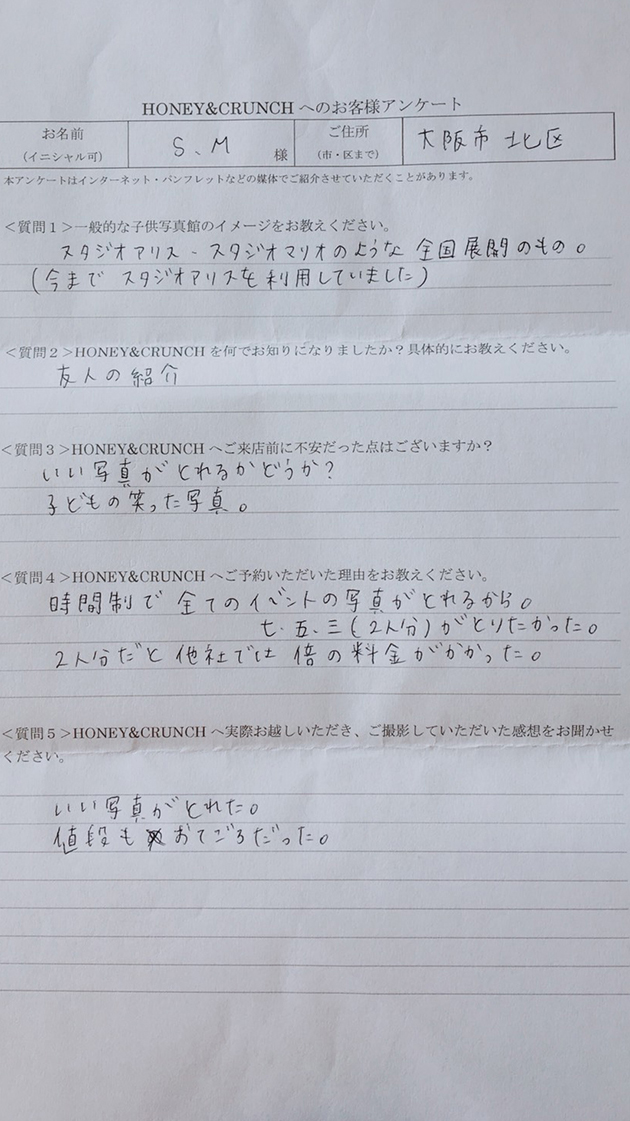 HONEY&CRUNCH へのお客様アンケート
お名前
(イニシャル可)
S、M
様
ご住所
(市・区まで)
大阪市 北区
本アンケートはインターネット・パンフレットなどの媒体でご紹介させていただくことがあります。
＜質問１＞一般的な子供写真館のイメージをお教えください。
スタジオアリス・スタジオマリオのような 全国展開のもの。
(今まで スタジオアリスを利用していました)
＜質問２＞HONEY&CRUNCH を何でお知りになりましたか？具体的にお教えください。
友人の紹介
＜質問３＞HONEY&CRUNCH へご来店前に不安だった点はございますか？
いい写真がとれるかどうか？
子どもの笑った写真。
＜質問４＞HONEY&CRUNCH へご予約いただいた理由をお教えください。
時間制で 全てのイベントの写真がとれるから。
七、五、三(2人分)がとりたかった。
2人分だと 他社では 倍の料金がかかった。
＜質問５＞HONEY&CRUNCH へ実際お越しいただき、ご撮影していただいた感想をお聞かせ
ください。
いい写真がとれた。
値段も おてごろだった。